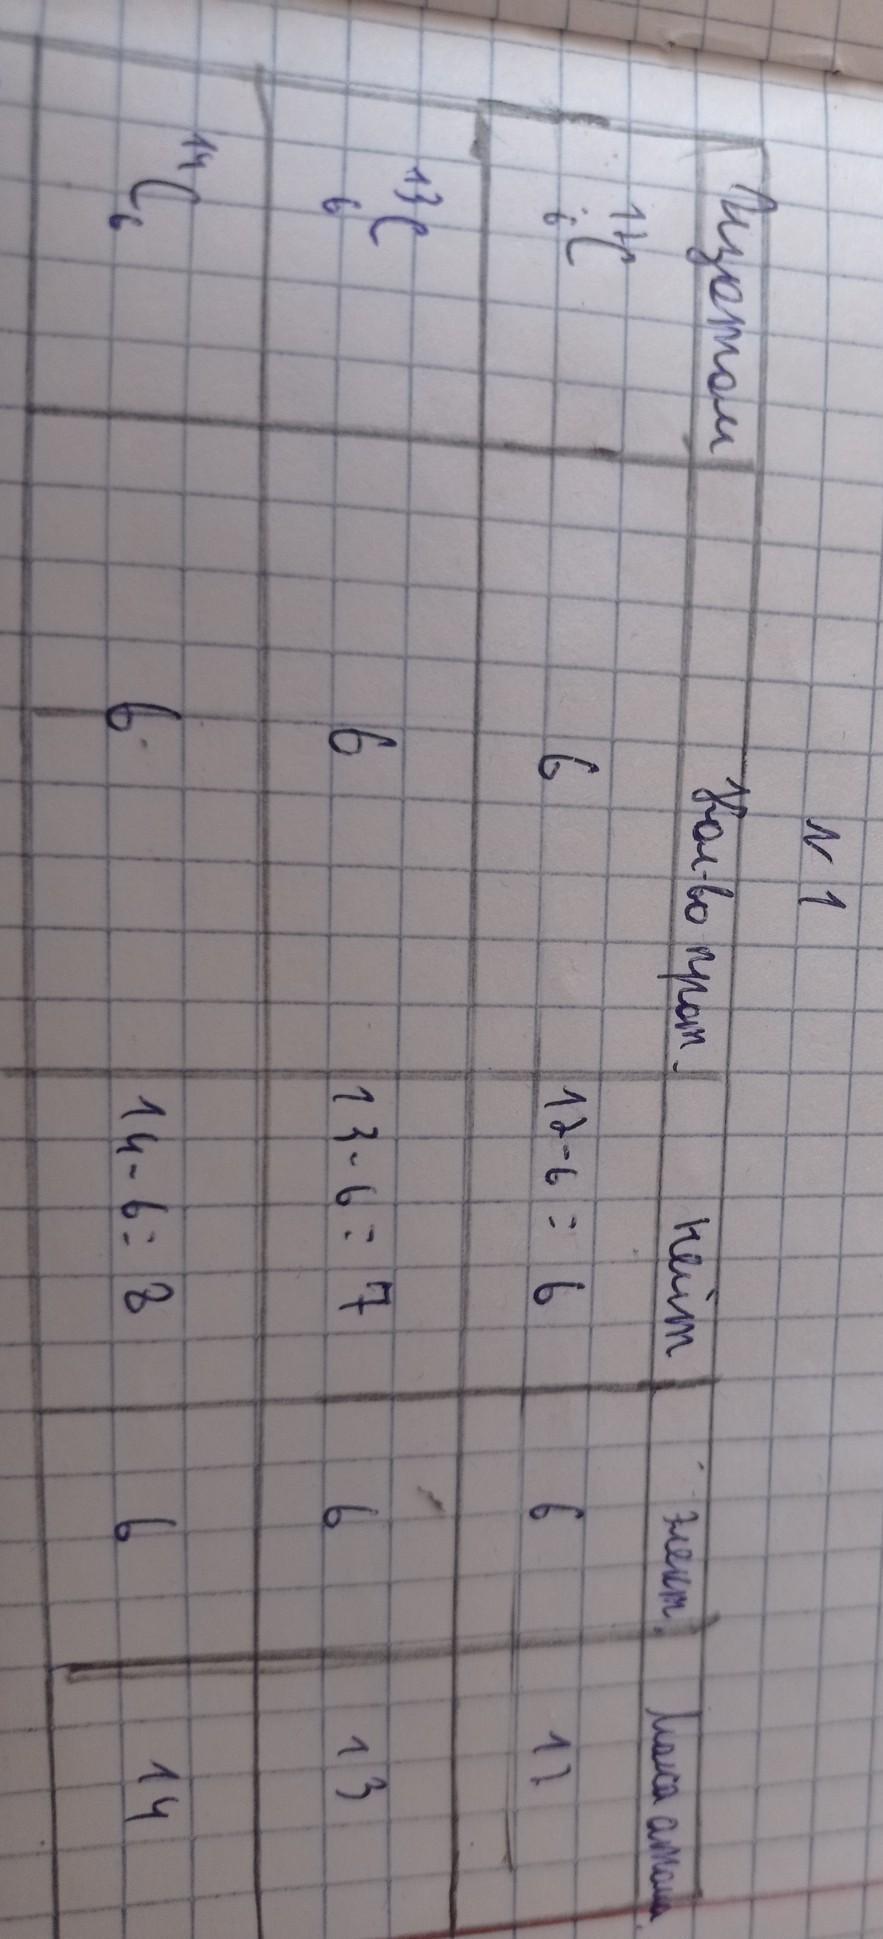 N 1
Изотом Кол-во прот. нейт элект. Масса атома
12 6 C 6 12-6= 6 6 12
13 6 C 6 13-6= 7 6 13
14 6 C 6 14-6= 8 6 14